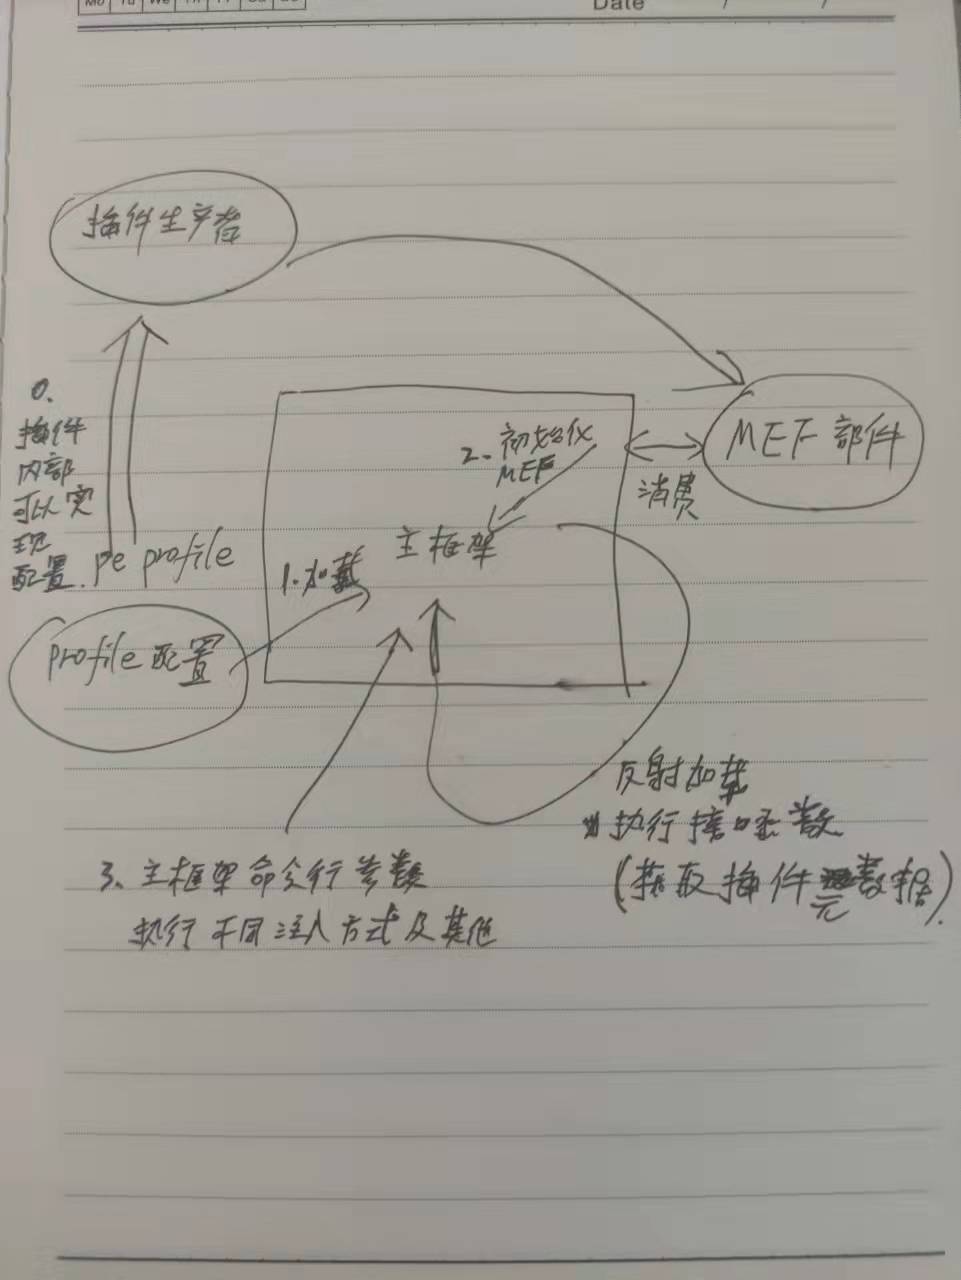 Mo Tu We Th Fr Sa Su
Date / /
插件生产者
0.
插件
内部
可以实
现
配置.
pe profile
profile配置
1.加载
2.初始化
MEF
主框架
消费
MEF部件
反射加载
执行接口函数
(获取插件元数据).
3、主框架命令行参数
执行不同注入方式及其他